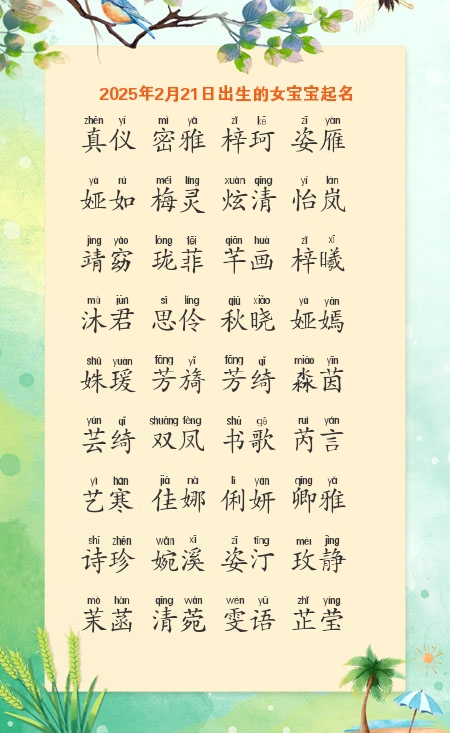 2025年2月21日出生的女宝宝起名
zhēn yí mì yǎ zǐ kē zī yàn
真仪 密雅 梓珂 姿雁
yà rú méi líng xuàn qīng yí lán
娅如 梅灵 炫清 怡岚
jìng yǎo lóng fēi qiān huà zǐ xī
靖窈 珑菲 芊画 梓曦
mù jūn sī líng qiū xiǎo yà yān
沐君 思伶 秋晓 娅嫣
shū yuàn fāng yǐ fāng qǐ miǎo yīn
姝瑗 芳旖 芳绮 淼茵
yún qǐ shuāng fèng shū gē ruì yán
芸绮 双凤 书歌 芮言
yì hán jiā nà lì yán qīng yǎ
艺寒 佳娜 俐妍 卿雅
shī zhēn wǎn xī zī tīng méi jìng
诗珍 婉溪 姿汀 玫静
mò hàn qīng wǎn wén yǔ zhǐ yíng
茉菡 清菀 雯语 芷莹